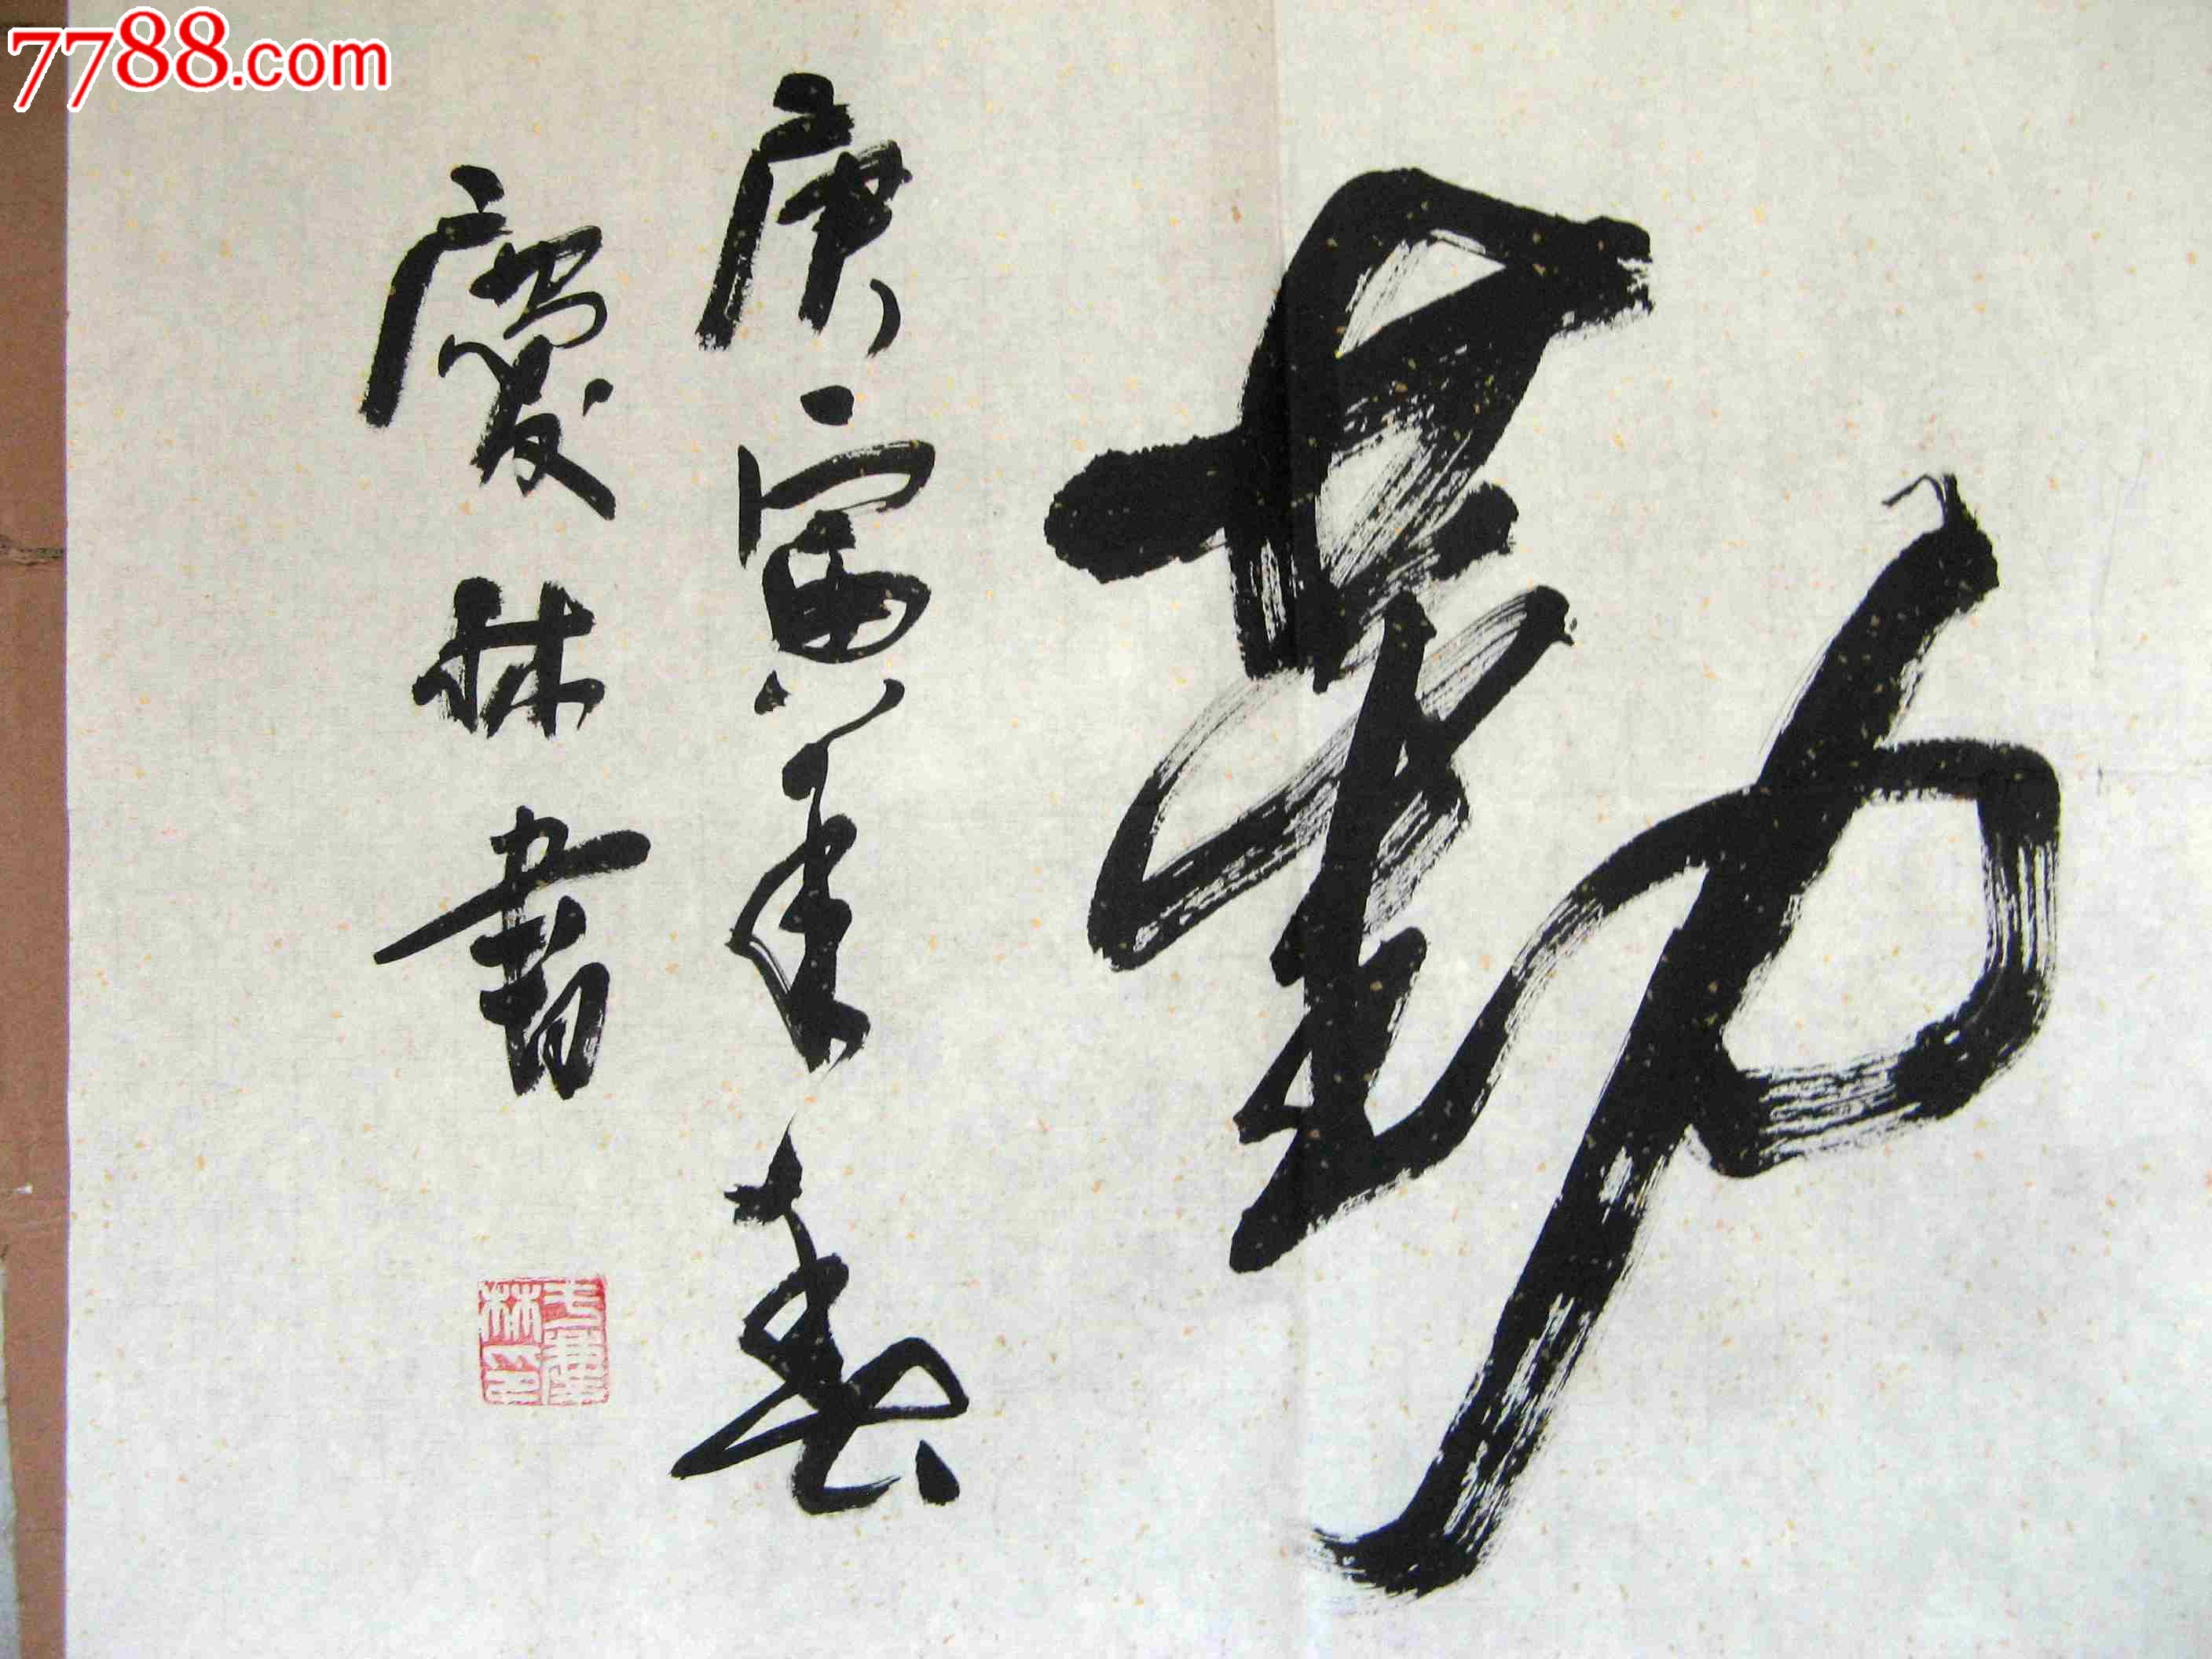 7788.com
勤
庚寅年春
慶林書